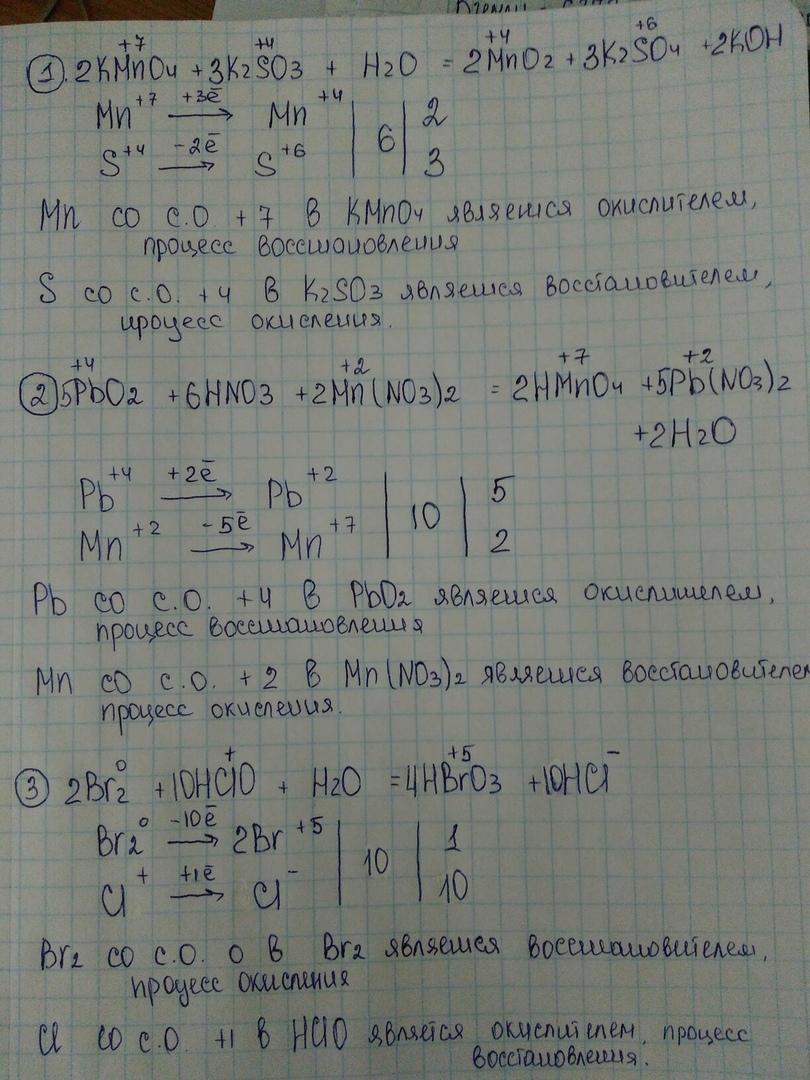 1. 2KMn⁺⁷O4 + 3K2S⁺⁴O3 + H2O = 2Mn⁺⁴O2 + 3K2S⁺⁶O4 + 2KOH
Mn⁺⁷ +3ē → Mn⁺⁴ | 6 | 2
S⁺⁴ -2ē → S⁺⁶ | 3
Mn со с.О. +7 в KMnO4 является окислителем,
процесс восстановления
S со с.О. +4 в K2SO3 является восстановителем,
процесс окисления.
2 5Pb⁺⁴O2 + 6HNO3 + 2Mn⁺²(NO3)2 = 2HMn⁺⁷O4 + 5Pb⁺²(NO3)2
+2H2O
Pb⁺⁴ +2ē → Pb⁺² | 10 | 5
Mn⁺² -5ē → Mn⁺⁷ | 2
Pb со с.О. +4 в PbO2 является окислителем,
процесс восстановления
Mn со с.О. +2 в Mn(NO3)2 является восстановителем
процесс окисления.
3 2Br2⁰ + 10HCl⁺O + H2O = 4HBr⁺⁵O3 + 10HCl⁻
Br2⁰ -10ē → 2Br⁺⁵ | 10 | 1
Cl⁺ +1ē → Cl⁻ | 10
Br2 со с.О. 0 в Br2 является восстановителем,
процесс окисления
Cl со с.О. +1 в HClO является окислителем, процесс
восстановления.